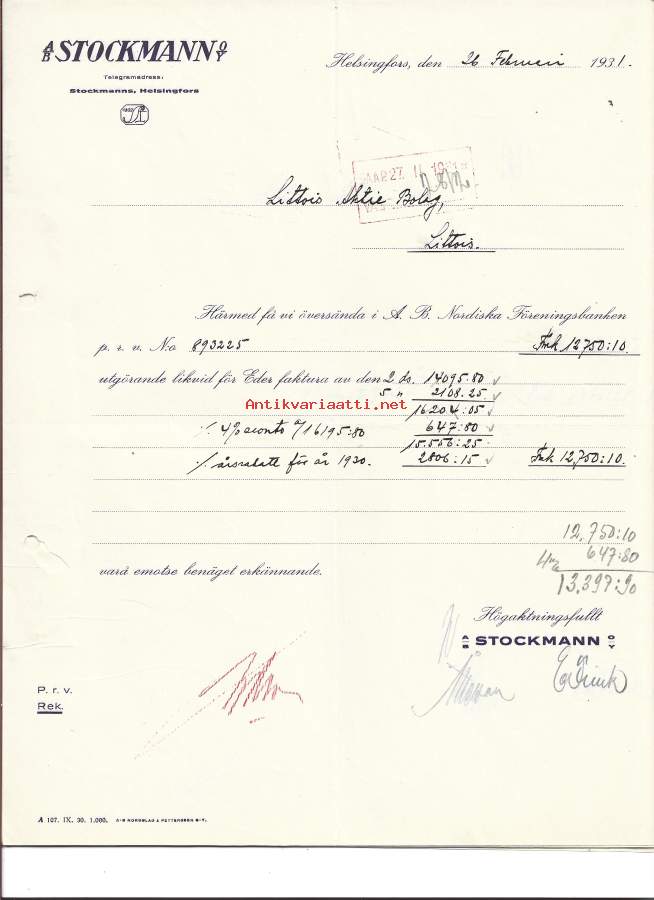 AB STOCKMANN OY
Telegramadress:
Stockmanns, Helsingfors
Helsingfors, den 26 Februari 1931.
Littois Aktie Bolag,
Littois.
Härmed få vi översända i A. B. Nordiska Föreningsbanken
p. r. v. No 893225 Fmk 12750:10
utgörande likvid för Eder faktura av den 2 ds. 14095.80
5 " 2108.25
Antikvariaatti.net
16204:05
% 4% sconto a/16195:80 647:80
15.556:25
% årsrabatt för år 1930. 2806:15 Fmk 12750:10.
12.750:10
647:80
13.397:90
vara emotse benäget erkännande.
Högaktningsfullt
AB STOCKMANN OY
P. r. v.
Rek.
A 107. IX. 30. 1,000. A-B NORDBLAD & PETTERSSON O-Y.